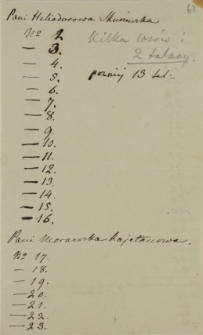 61
Pani Heliodorowa Skórzewska
No 2
Kilka losów:
— 3.
2 talary.
— 4.
— 5.
poniżej 13 tal
— 6.
— 7.
— 8.
— 9.
— 10.
— 11.
— 12.
— 13.
— 14.
— 15.
— 16.
Pani Morawska Kajetanowa.
No 17.
— 18.
— 19.
— 20.
— 21.
— 22.
— 23.